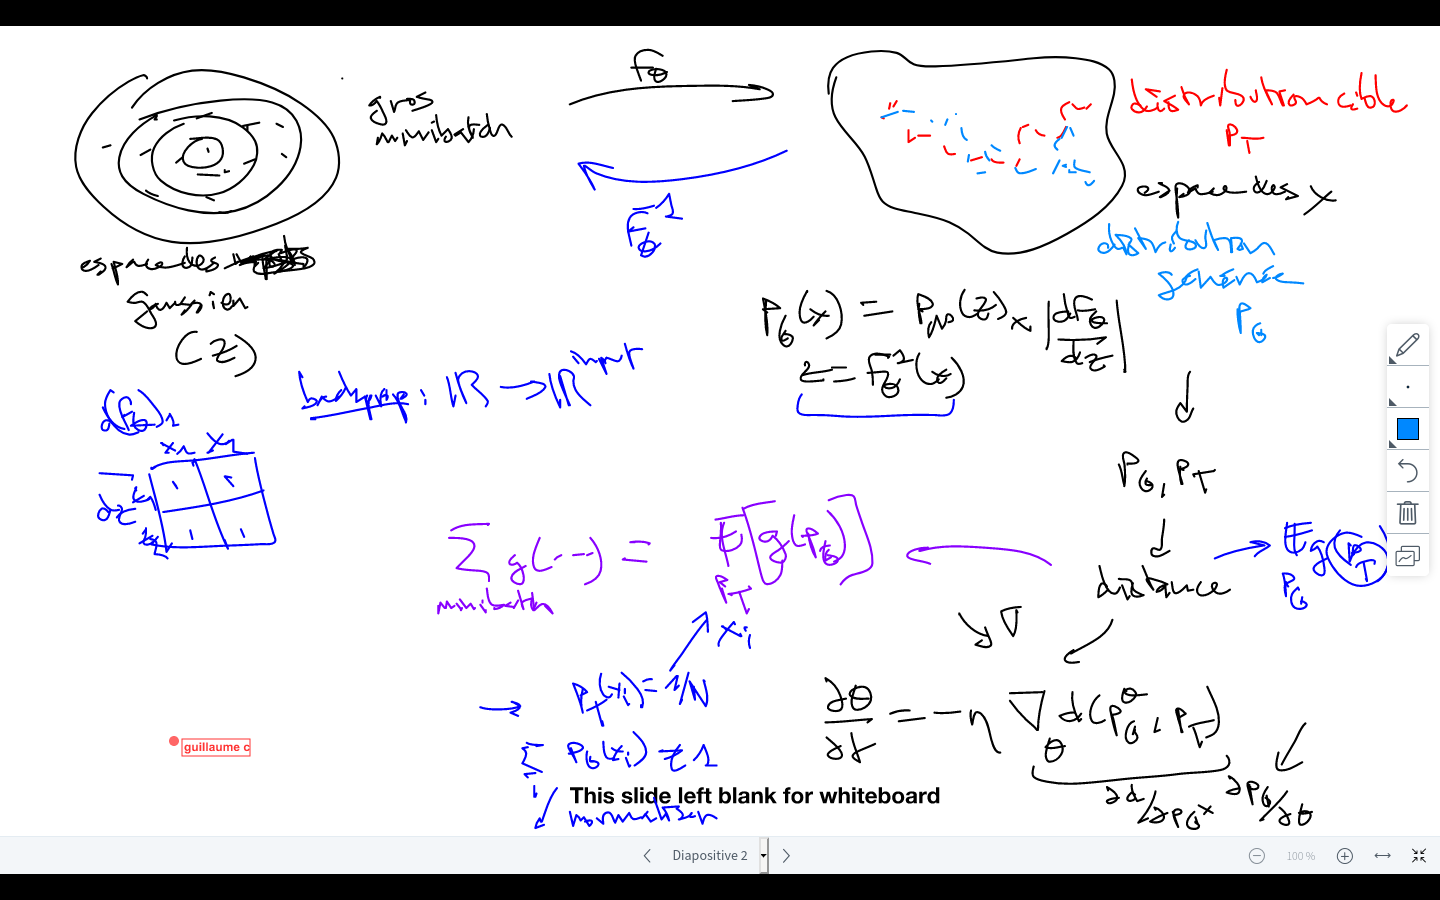 gros
minibatch
Fθ
Fθ⁻¹
distribution cible
P_T
espace des x
distribution
générée
P_θ
espace des
gaussien
(z)
P_θ(x) = P_N(z) × |dFθ/dz|
z = Fθ⁻¹(x)
backprop : ℝ → ℝ^input
d(Fθ)₁
x₁ x₂
dz
z₁
z₂
P_θ, P_T
distance
𝔼 g(P_T)
P_θ
Σ g(---) = 𝔼[g(P_θ)]
minibatch
P_T
x_i
∇
→ P_T(x_i) = 1/N
Σ P_θ(x_i) ≠ 1
i
normaliser
∂θ/∂t = -η ∇_θ d(P_θ, P_T)
∂d/∂P_θ × ∂P_θ/∂θ
guillaume c
This slide left blank for whiteboard
Diapositive 2
100 %